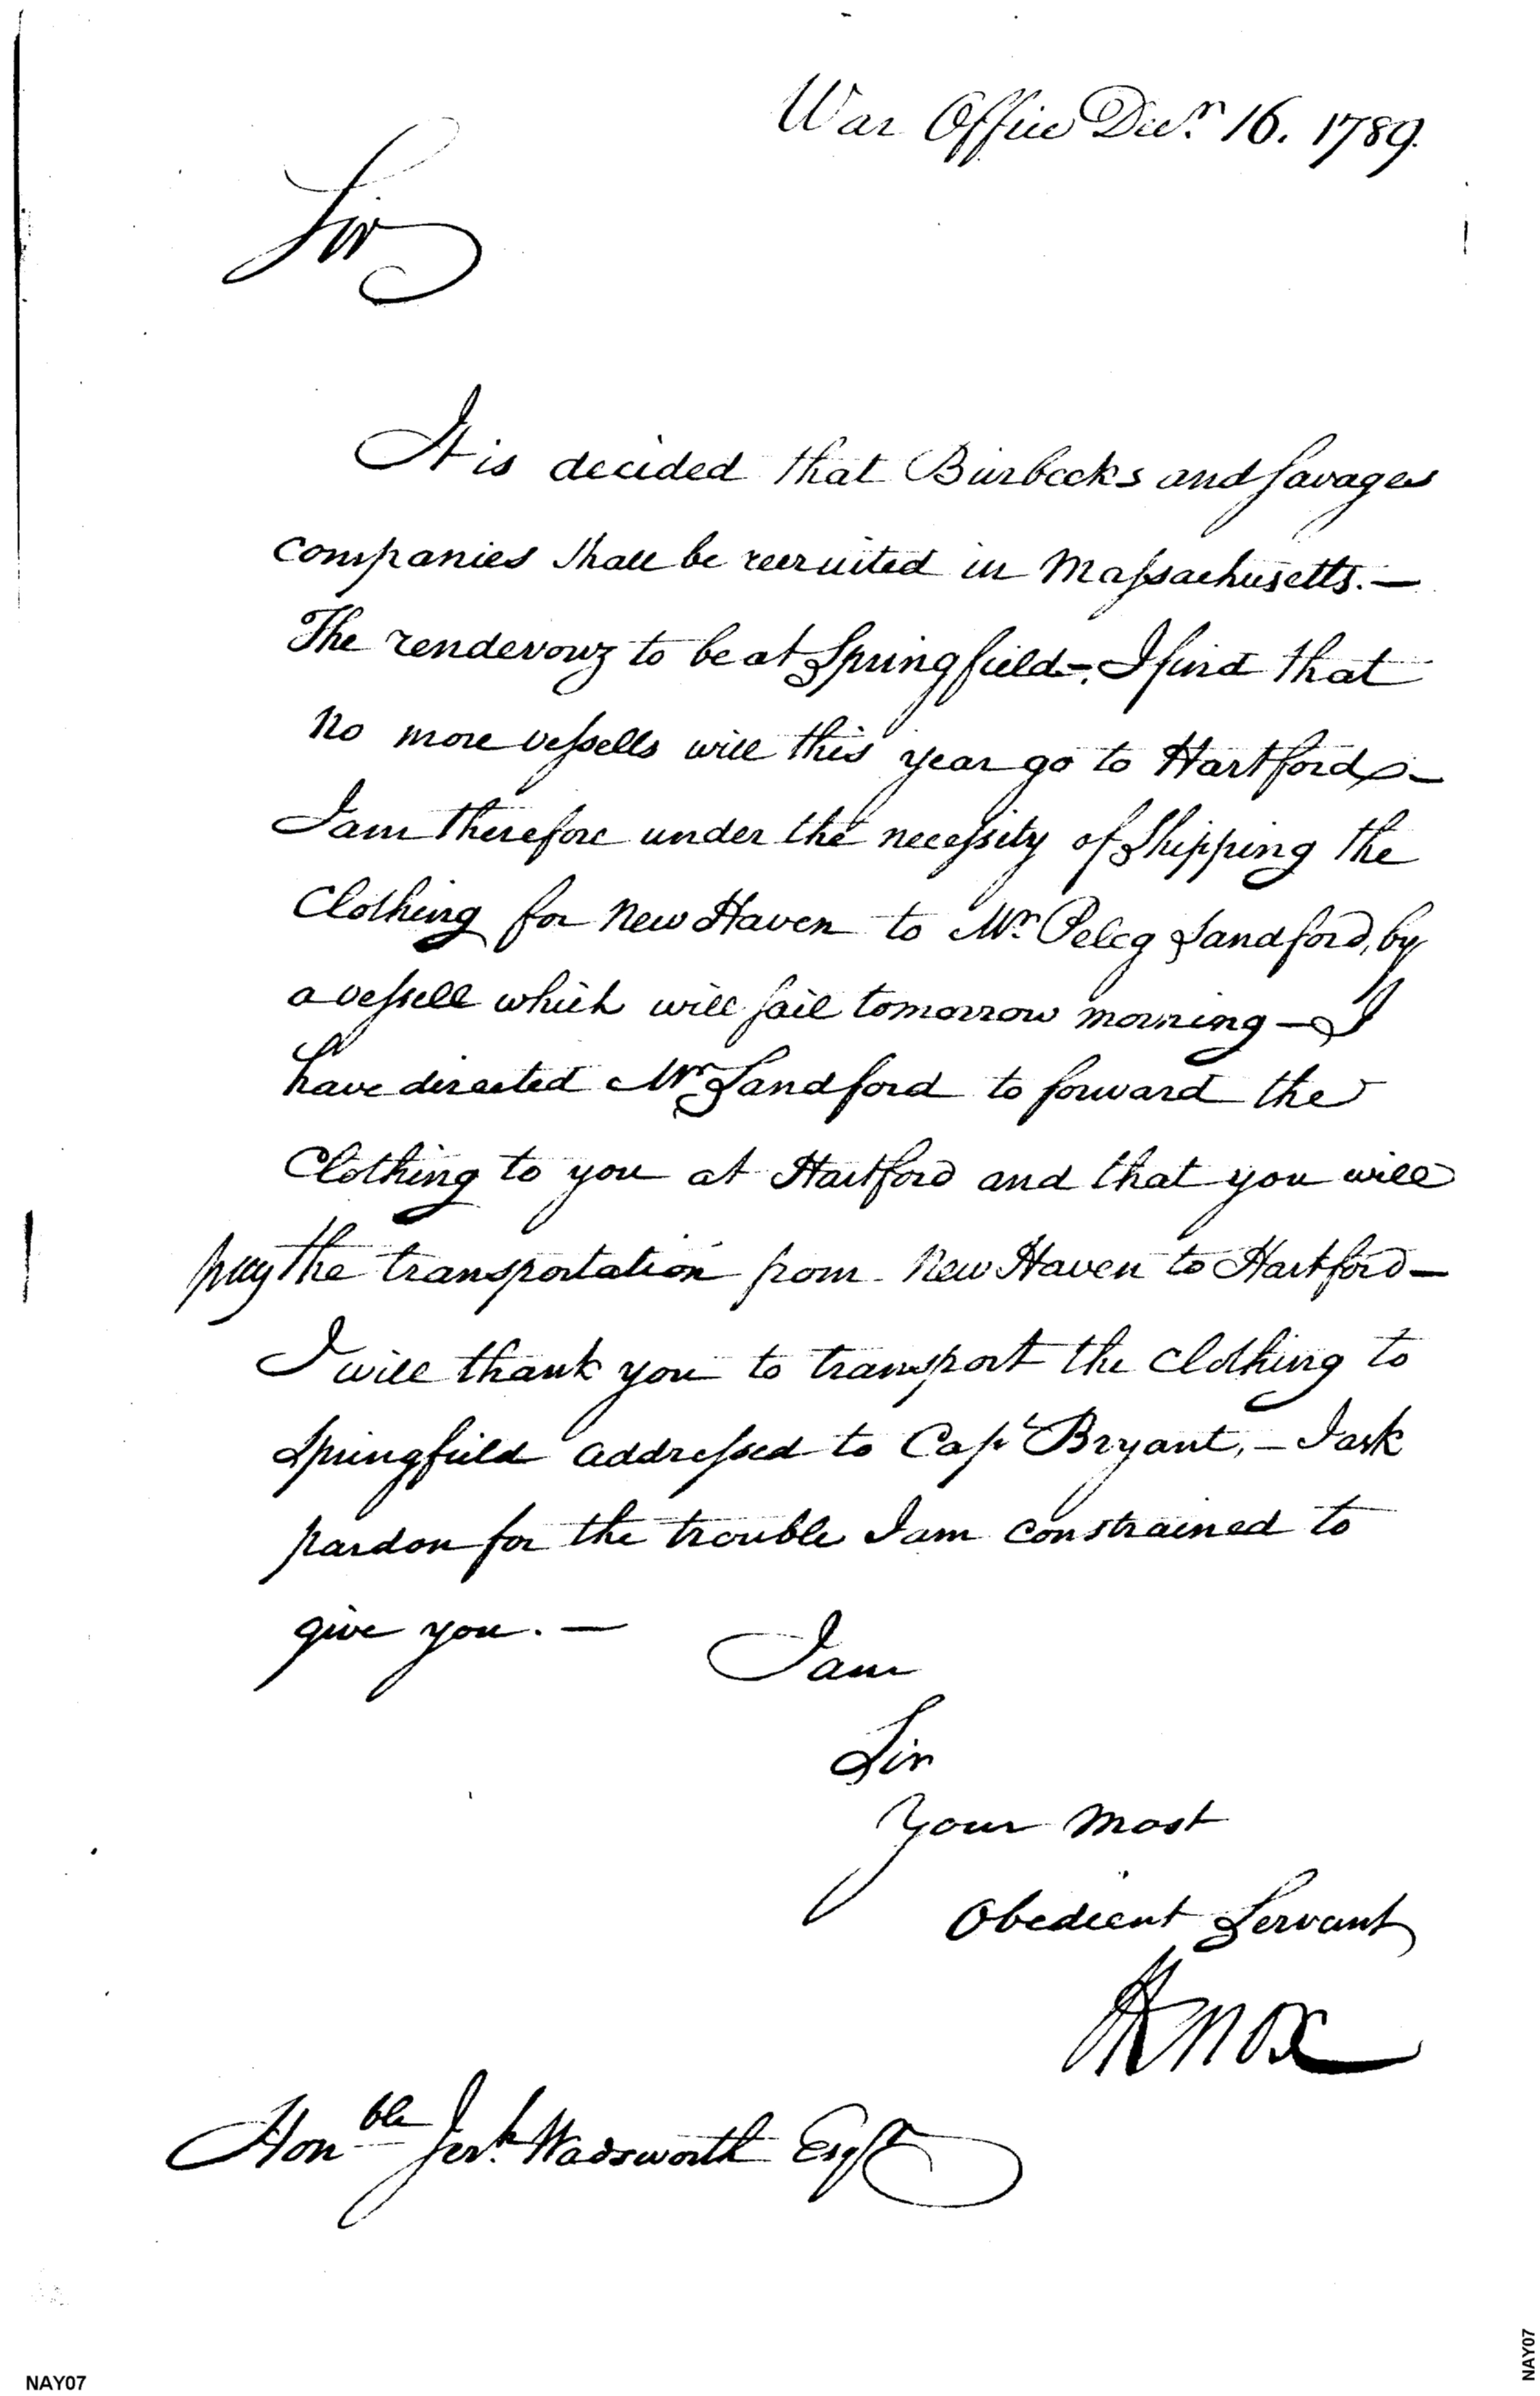 War Office Decr. 16. 1789.
Sir
It is decided that Burbecks and Savages
companies shall be recruited in Massachusetts. —
The rendevouz to be at Springfield —. I find that
no more vessells will this year go to Hartford —
I am therefore under the necessity of shipping the
Clothing for New Haven to Mr. Peleg Sandford, by
a vessell which will sail tomorrow morning — I
have directed Mr Sandford to forward the
Clothing to you at Hartford and that you will
pay the transportation from New Haven to Hartford —
I will thank you to transport the clothing to
Springfield addressed to Capt Bryant, — I ask
pardon for the trouble I am constrained to
give you. — I am
Sir
Your most
Obedient Servant
HKnox
Honble Jerh. Wadsworth Esqr
NAY07
NAY07